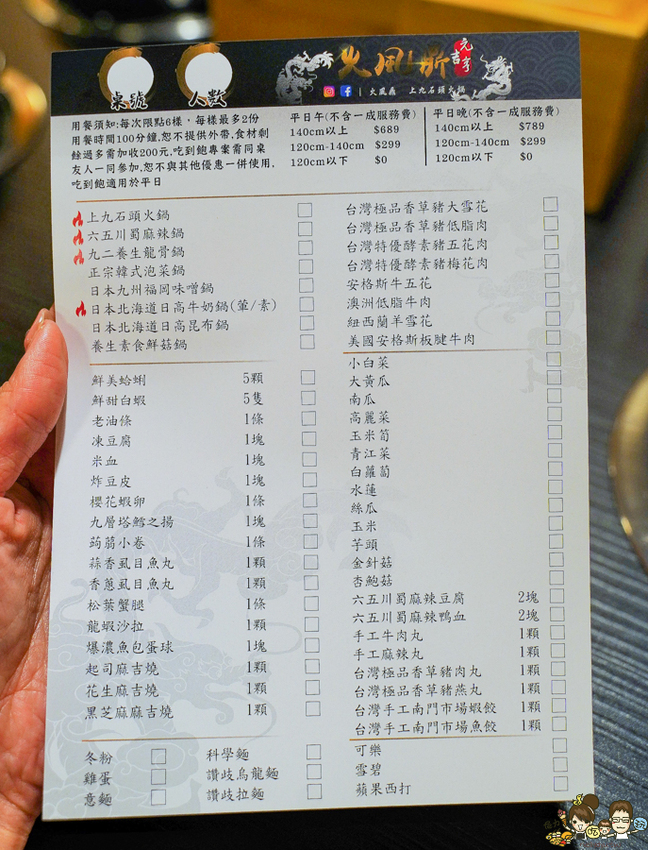 桌號
人數
火風鼎
元亨
吉
| 火風鼎 上九石頭火鍋
用餐須知:每次限點6樣，每樣最多2份
用餐時間100分鐘,恕不提供外帶,食材剩
餘過多需加收200元,吃到飽專案需同桌
友人一同參加,恕不與其他優惠一併使用,
吃到飽適用於平日
平日午(不含一成服務費)
140cm以上 $689
120cm-140cm $299
120cm以下 $0
平日晚(不含一成服務費)
140cm以上 $789
120cm-140cm $299
120cm以下 $0
上九石頭火鍋
六五川蜀麻辣鍋
九二養生龍骨鍋
正宗韓式泡菜鍋
日本九州福岡味噌鍋
日本北海道日高牛奶鍋(葷/素)
日本北海道日高昆布鍋
養生素食鮮菇鍋
鮮美蛤蜊 5顆
鮮甜白蝦 5隻
老油條 1條
凍豆腐 1塊
米血 1塊
炸豆皮 1塊
櫻花蝦卵 1條
九層塔鱈之揚 1塊
蒟蒻小卷 1條
蒜香虱目魚丸 1顆
香蔥虱目魚丸 1顆
松葉蟹腿 1條
龍蝦沙拉 1顆
爆濃魚包蛋球 1塊
起司麻吉燒 1顆
花生麻吉燒 1顆
黑芝麻麻吉燒 1顆
冬粉
雞蛋
意麵
科學麵
讚歧烏龍麵
讚歧拉麵
台灣極品香草豬大雪花
台灣極品香草豬低脂肉
台灣特優酵素豬五花肉
台灣特優酵素豬梅花肉
安格斯牛五花
澳洲低脂牛肉
紐西蘭羊雪花
美國安格斯板腱牛肉
小白菜
大黃瓜
南瓜
高麗菜
玉米筍
青江菜
白蘿蔔
水蓮
絲瓜
玉米
芋頭
金針菇
杏鮑菇
六五川蜀麻辣豆腐 2塊
六五川蜀麻辣鴨血 2塊
手工牛肉丸 1顆
手工麻辣丸 1顆
台灣極品香草豬肉丸 1顆
台灣極品香草豬燕丸 1顆
台灣手工南門市場蝦餃 1顆
台灣手工南門市場魚餃 1顆
可樂
雪碧
蘋果西打